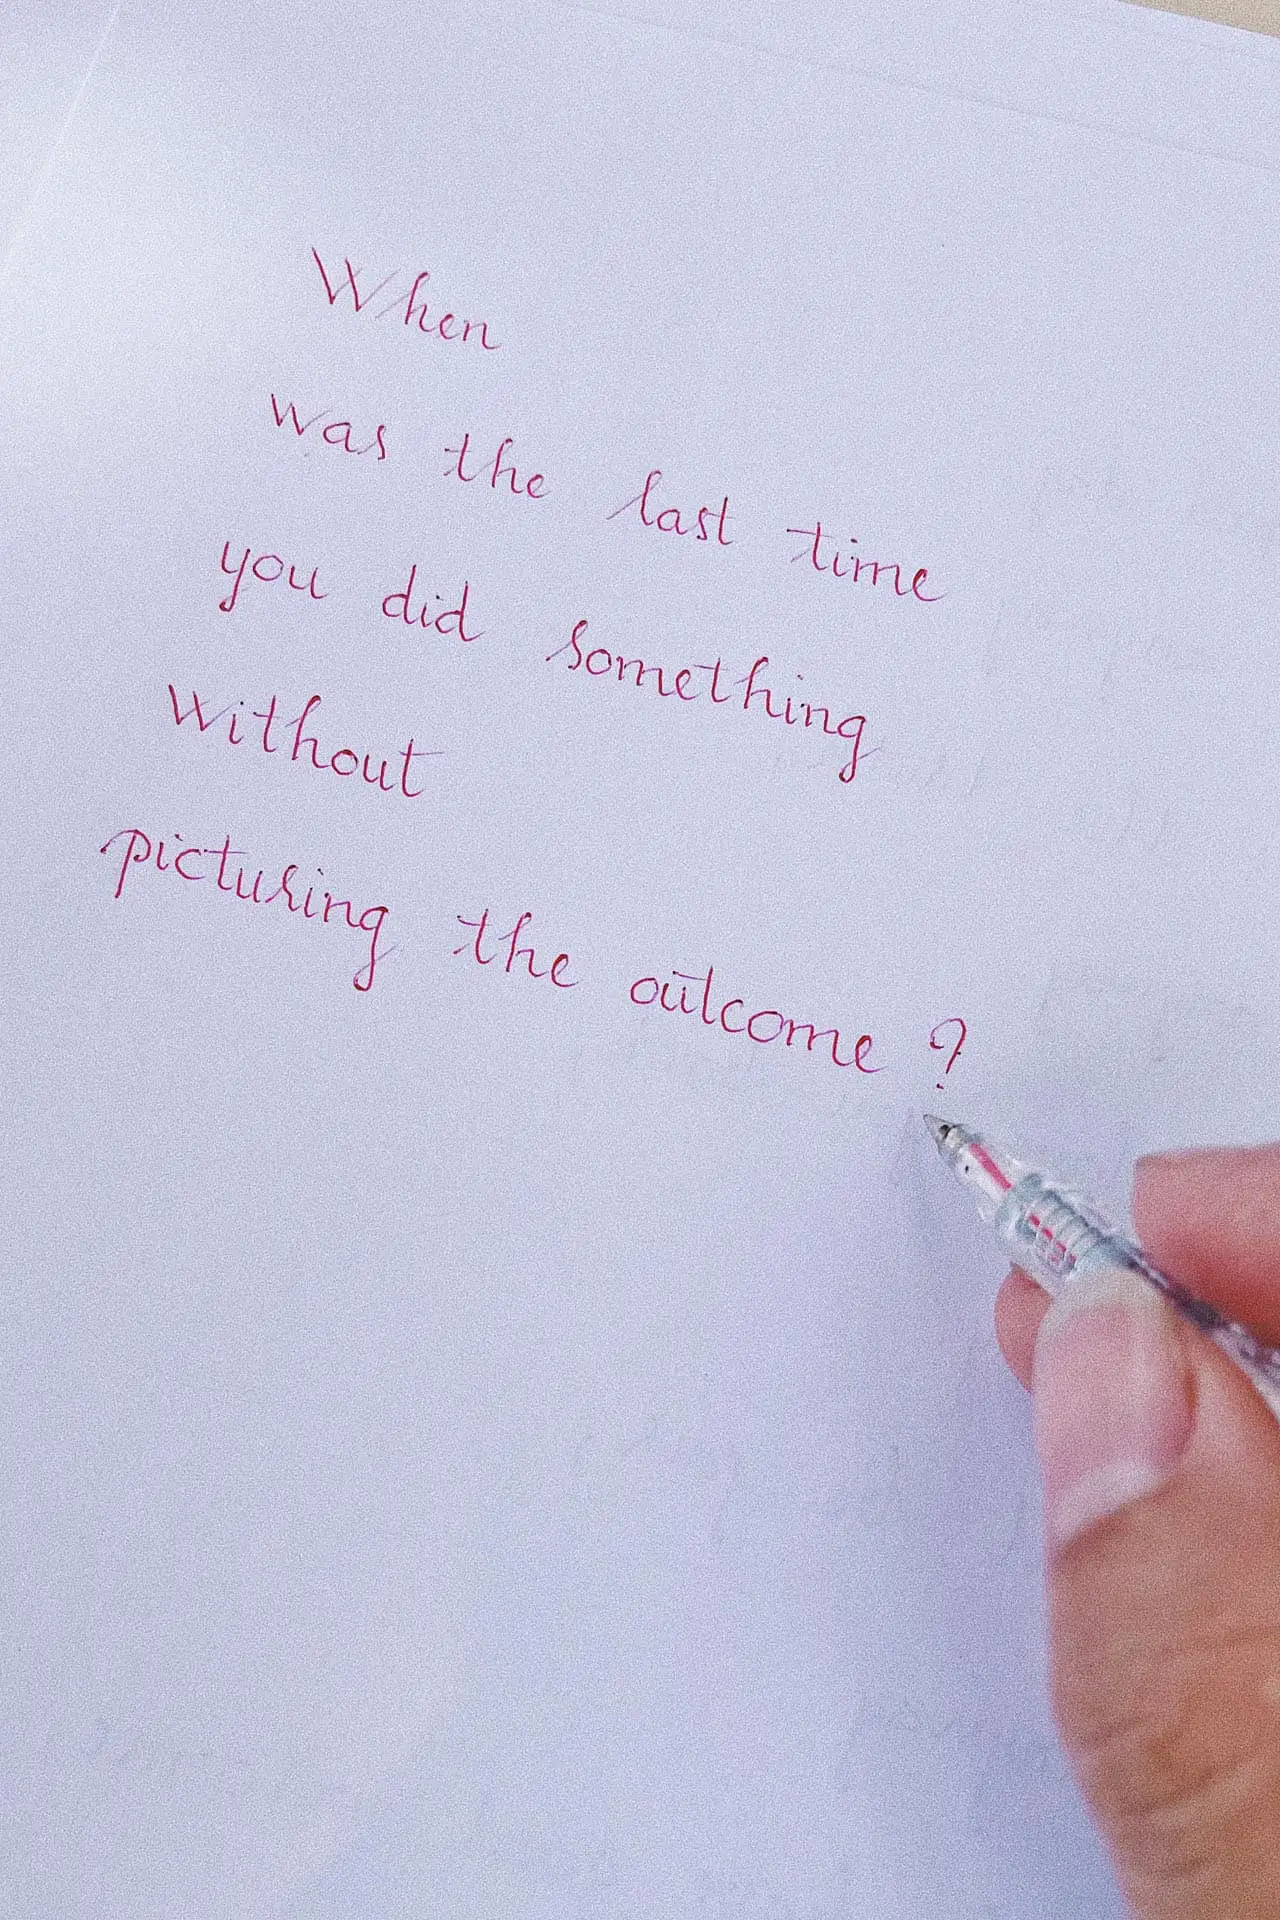 When
was the last time
you did something
without
picturing the outcome ?